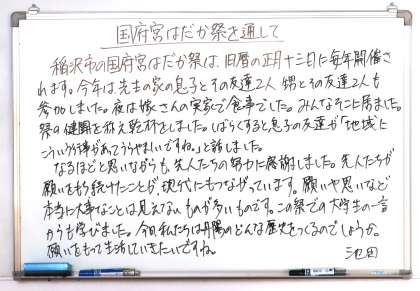 国府宮はだか祭を通して
稲沢市の国府宮はだか祭は、旧暦の正月十三日に毎年開催さ
れます。今年は先生の家の息子とその友達2人 甥とその友達2人も
参加しました。夜は嫁さんの実家で食事でした。みんなそこに居ました。
祭の健闘を称え乾杯をしました。しばらくすると息子の友達が「地域に
こういう行事があってうらやましいですね。」と話しました。
なるほどと思いながらも、先人たちの努力に感謝しました。先人たちが
願いをもち続けたことが、現代にもつながっています。願いや思いなど
本当に大事なことは見えないものが多いものです。この祭での大学生の一言
からも学びました。今日私たちは丹陽のどんな歴史をつくるのでしょうか。
願いをもって生活していきたいですね。
池田